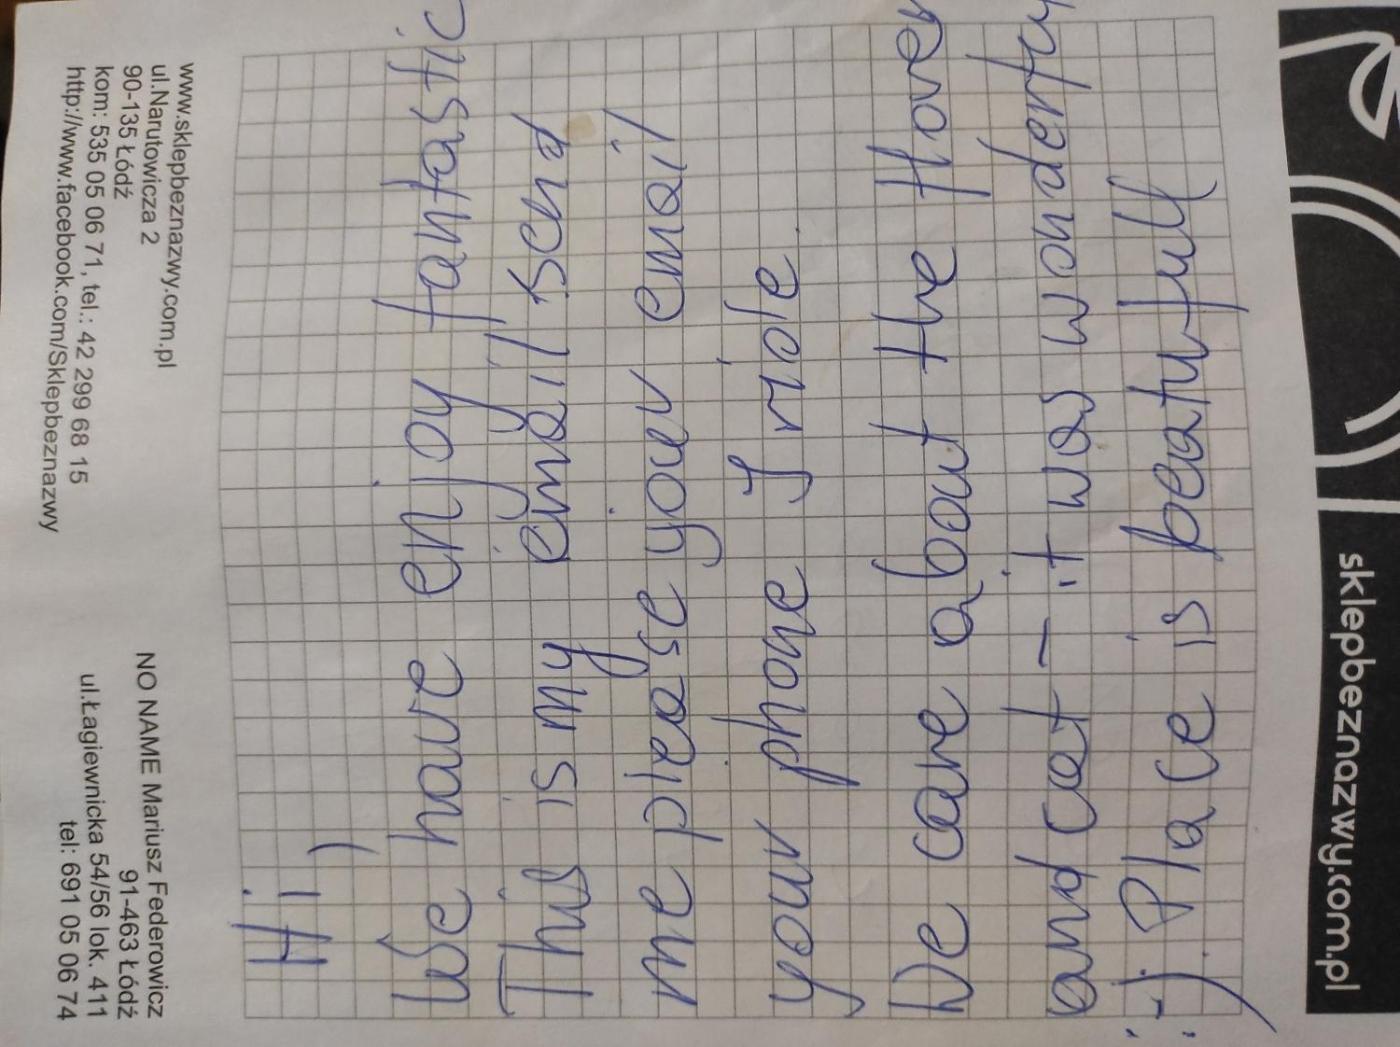 Hi,
We have enjoy fantastic.
This is my email send
me please your email
you my phone I ride.
We care about the flover
and cat – it was wonderfu
:-). Place is beatufull
sklepbeznazwy.com.pl
NO NAME Mariusz Federowicz
91-463 Łódź
ul.Łagiewnicka 54/56 lok. 411
tel: 691 05 06 74
www.sklepbeznazwy.com.pl
ul.Narutowicza 2
90-135 Łódź
kom: 535 05 06 71, tel.: 42 299 68 15
http://www.facebook.com/Sklepbeznazwy